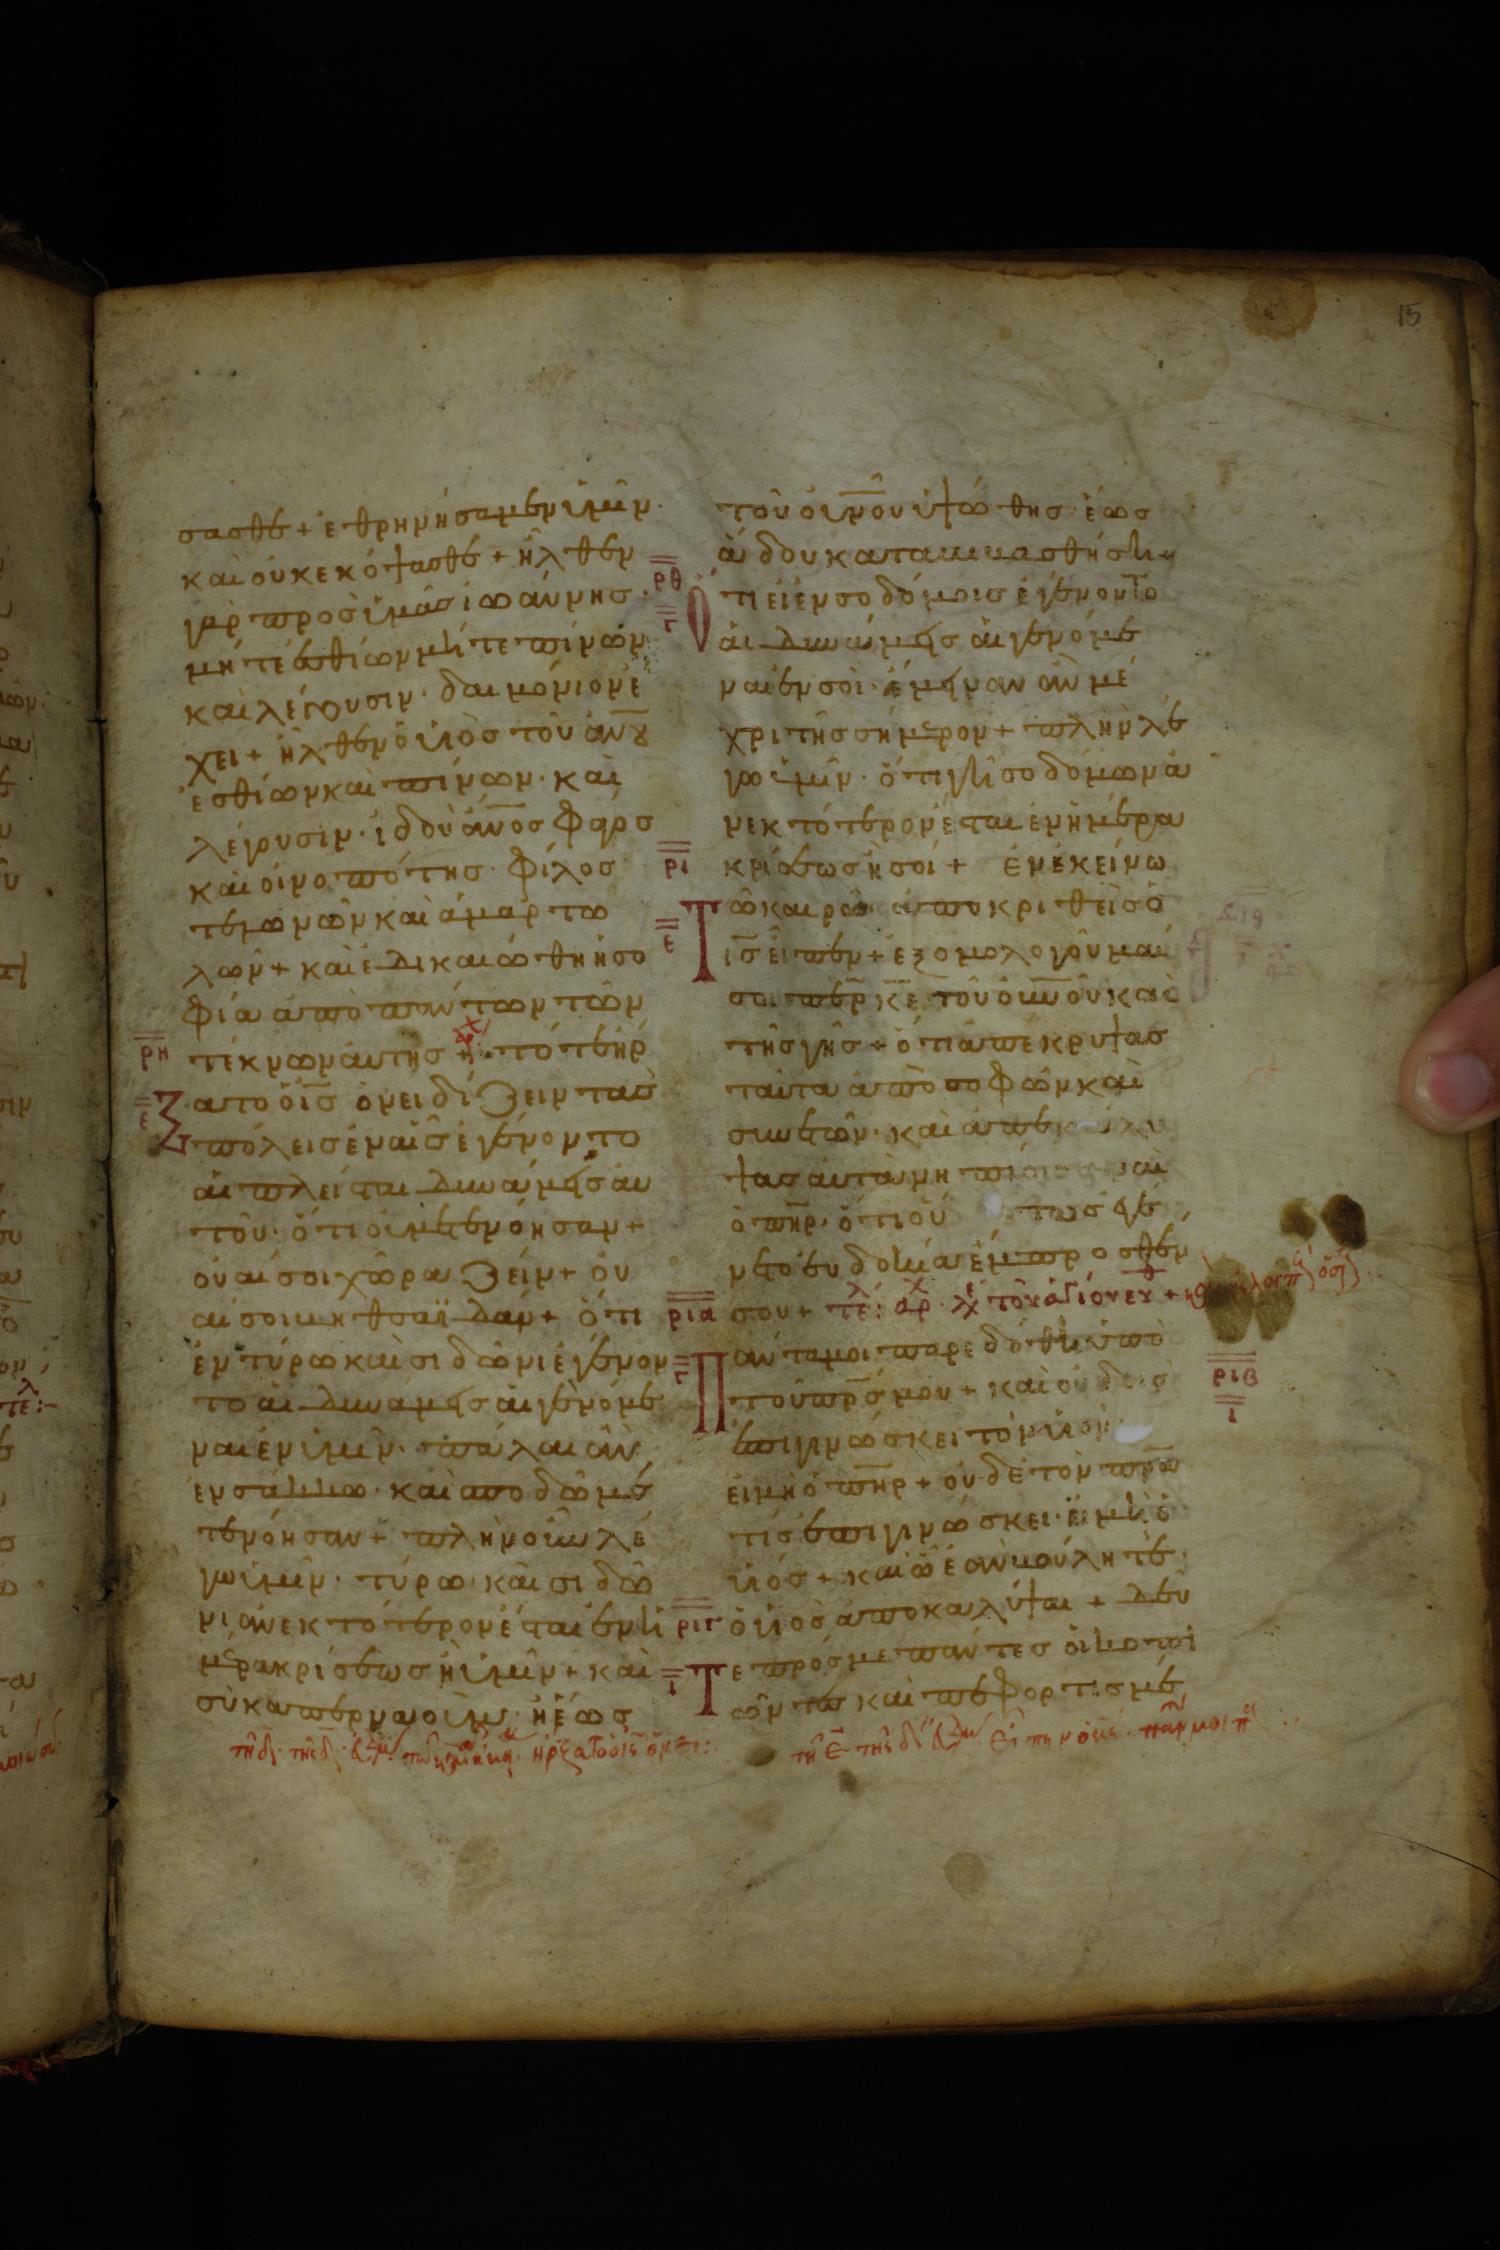 σασθε + ἐθρηνήσαμεν ὑμῖν·
καὶ οὐκ ἐκόψασθε + ἦλθεν
γὰρ πρὸς ὑμᾶς ἰωάννης·
μήτε ἐσθίων μήτε πίνων·
καὶ λέγουσιν· δαιμόνιον ἔ
χει + ἦλθεν ὁ υἱὸς τοῦ ἀνου
ἐσθίων καὶ πίνων· καὶ
λέγουσιν· ἰδοὺ ἄνος φάγος
καὶ οἰνοπότης· φίλος
τελωνῶν καὶ ἁμαρτω
λῶν + καὶ ἐδικαιώθη ἡ σο
φία ἀπὸ πάντων τῶν
ρη τέκνων αὐτῆς + τότε ἤρ
ξατο ὁ ις ὀνειδίζειν τὰς
πόλεις ἐν αἷς ἐγένοντο
αἱ πλεῖσται δυνάμεις αὐ
τοῦ· ὅτι οὐ μετενόησαν +
οὐαί σοι χωραζείν + οὐ
αί σοι βηθσαϊδάν + ὅτι
ἐν τύρω καὶ σιδῶνι ἐγένον
το αἱ δυνάμεις αἱ γενόμε
ναι ἐν ὑμῖν· πάλαι ἂν
ἐν σάκκω καὶ σποδῶ με
τενόησαν + πλὴν λέ
γω ὑμῖν· τύρω καὶ σιδῶ
νι ἀνεκτότερον ἔσται ἐν ἡ
μέρα κρίσεως ἢ ὑμῖν + καὶ
σὺ καπερναούμ· ἡ ἕως
τοῦ οὐνοῦ ὑψωθῆς· ἕως
ἅδου καταβιβασθήση
ρθ τι εἰ ἐν σοδόμοις ἐγένοντο
αἱ δυνάμεις αἱ γενόμε
ναι ἐν σοὶ· ἔμειναν ἂν μέ
χρι τῆς σήμερον + πλὴν λέ
γω ὑμῖν· ὅτι γῆ σοδόμων ἀ
νεκτότερον ἔσται ἐν ἡμέρα
ρι κρίσεως ἢ σοί + ἐν ἐκείνω
Τῶ καιρῶ ἀποκριθεὶς ὁ
ις εἶπεν + ἐξομολογοῦμαί
σοι περ κε τοῦ οὐνοῦ καὶ
τῆς γῆς + ὅτι ἀπέκρυψας
ταῦτα ἀπὸ σοφῶν καὶ
συνετῶν· καὶ ἀπεκάλυ
ψας αὐτὰ νηπίοις ναὶ
ὁ πηρ· ὅτι οὕτως ἐγέ
νετο εὐδοκία ἔμπροσθέν
ρια σου +
Πάντα μοι παρεδόθη ὑπὸ
τοῦ πρς μου + καὶ οὐδεὶς
ἐπιγινώσκει τὸν υἱὸν
εἰ μὴ ὁ πηρ + οὐδὲ τὸν πρα
τίς ἐπιγινώσκει· εἰ μὴ ὁ
υἱός + καὶ ὧ ἐὰν βούληται
ριγ ὁ υἱὸς ἀποκαλύψαι + δεῦ
τε πρός με πάντες οἱ κοπι
ῶντες καὶ πεφορτισμέ
ριβ
15